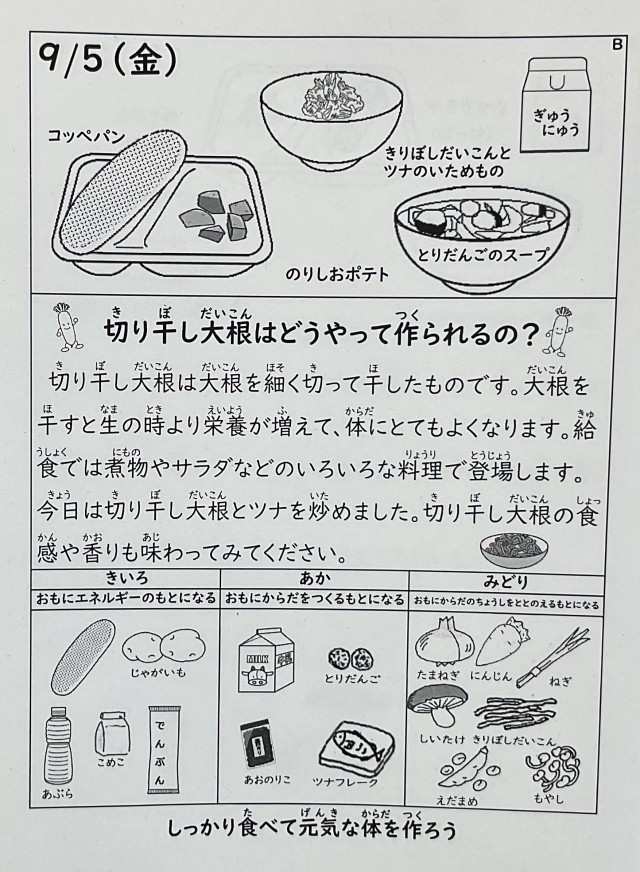 B
9/5(金)
コッペパン
きりぼしだいこんと
ツナのいためもの
ぎゅう
にゅう
とりだんごのスープ
のりしおポテト
切り干し大根はどうやって作られるの?
切り干し大根は大根を細く切って干したものです。大根を
干すと生の時より栄養が増えて、体にとてもよくなります。給
食では煮物やサラダなどのいろいろな料理で登場します。
今日は切り干し大根とツナを炒めました。切り干し大根の食
感や香りも味わってみてください。
きいろ
おもにエネルギーのもとになる
じゃがいも
あぶら
こめこ
でんぷん
あか
おもにからだをつくるもとになる
MILK
とりだんご
あおのりこ
ツナフレーク
みどり
おもにからだのちょうしをととのえるもとになる
たまねぎ
にんじん
ねぎ
しいたけ
きりぼしだいこん
えだまめ
もやし
しっかり食べて元気な体を作ろう